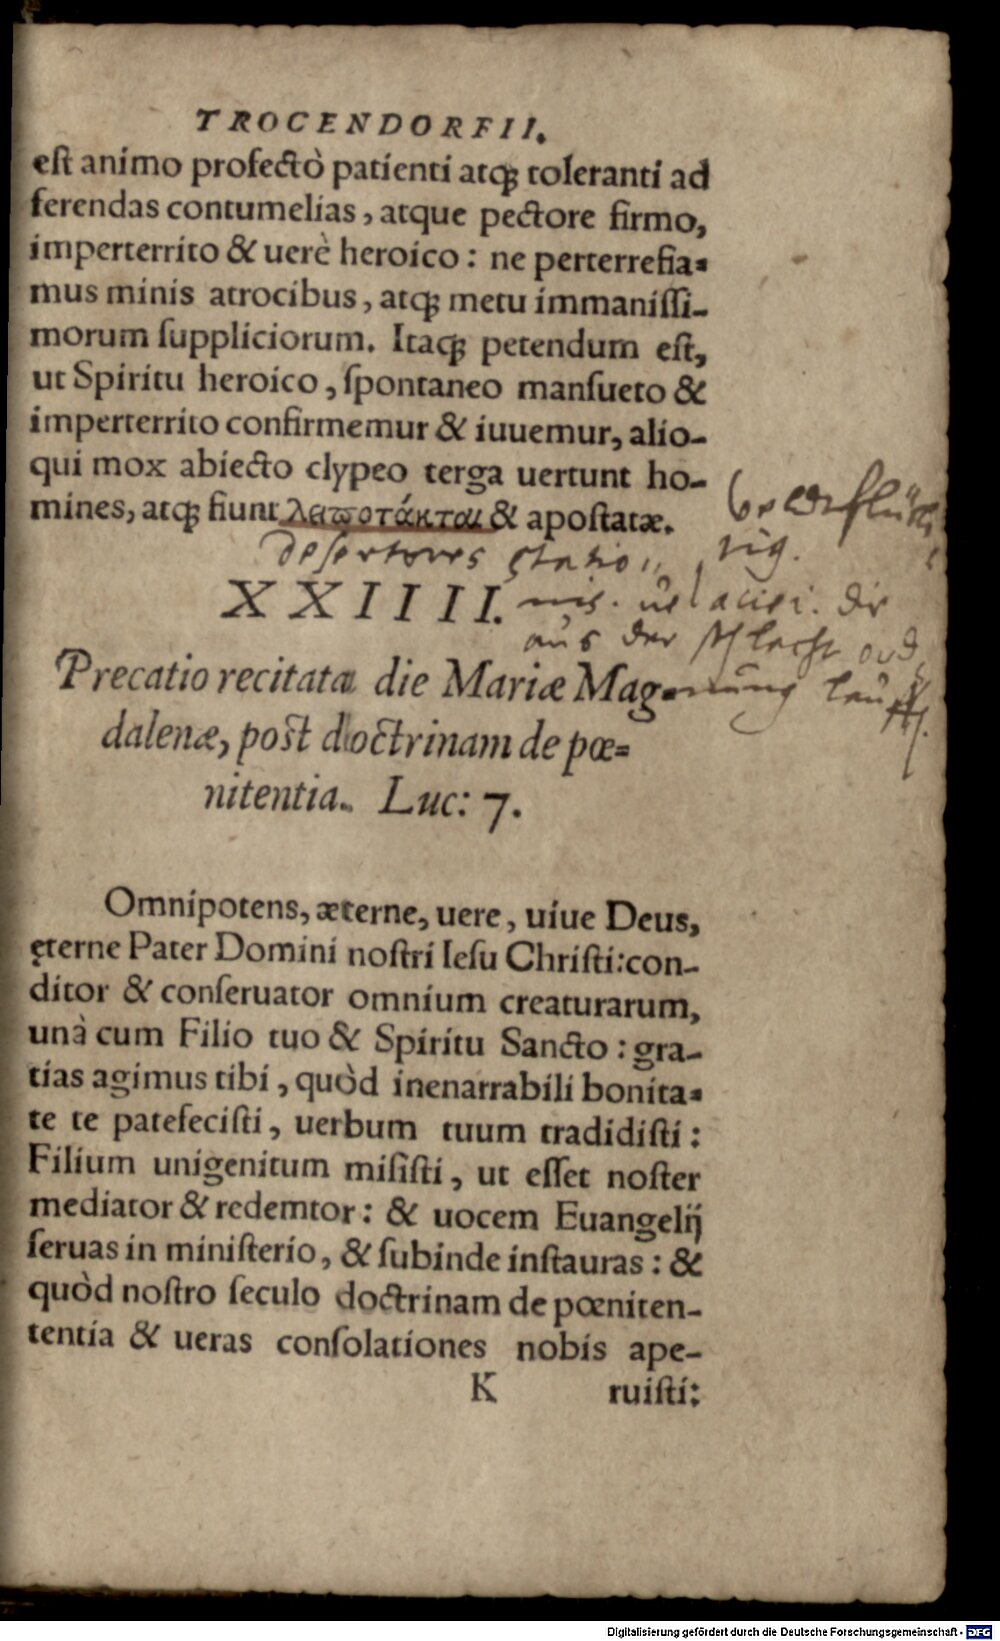 TROCENDORFII.
est animo profectò patienti atq́; toleranti ad
ferendas contumelias, atque pectore firmo,
imperterrito & uerè heroico: ne perterrefia=
mus minis atrocibus, atq́; metu immanissi-
morum suppliciorum. Itaq́; petendum est,
ut Spiritu heroico, spontaneo mansueto &
imperterrito confirmemur & iuuemur, alio-
qui mox abiecto clypeo terga uertunt ho-
mines, atq́; fiunt λειποτάκται & apostatæ.
desertores statio,,
nis. uel aciei. die
aus der schlacht ord
nung lauff
XXIIII.
Precatio recitata die Mariæ Mag=
dalenæ, post doctrinam de pœ=
nitentia. Luc: 7.
Omnipotens, æterne, uere, uiue Deus,
ęterne Pater Domini nostri Iesu Christi: con-
ditor & conseruator omnium creaturarum,
unà cum Filio tuo & Spiritu Sancto: gra-
tias agimus tibi, quòd inenarrabili bonita=
te te patefecisti, uerbum tuum tradidisti:
Filium unigenitum misisti, ut esset noster
mediator & redemtor: & uocem Euangelij
seruas in ministerio, & subinde instauras: &
quòd nostro seculo doctrinam de pœniten-
tentia & ueras consolationes nobis ape-
K ruisti:
Digitalisierung gefördert durch die Deutsche Forschungsgemeinschaft - DFG